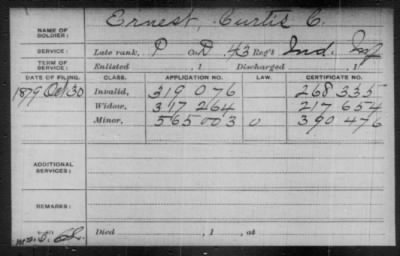 NAME OF SOLDIER: Ernest, Curtis C.
SERVICE: Late rank, P Co. D, 43 Reg't Ind. Inf
TERM OF SERVICE: Enlisted , 1 Discharged , 1
DATE OF FILING. CLASS. APPLICATION NO. LAW. CERTIFICATE NO.
1879 Oct 30 Invalid, 319 076 268 335
Widow, 317 264 217 654
Minor, 565 003 0 390 476
ADDITIONAL SERVICES:
REMARKS:
Died , 1 , at